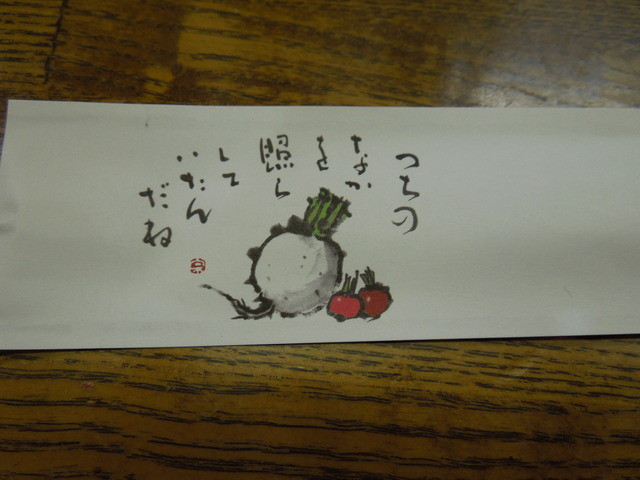 つちの
なか
を
照ら
して
いたん
だね